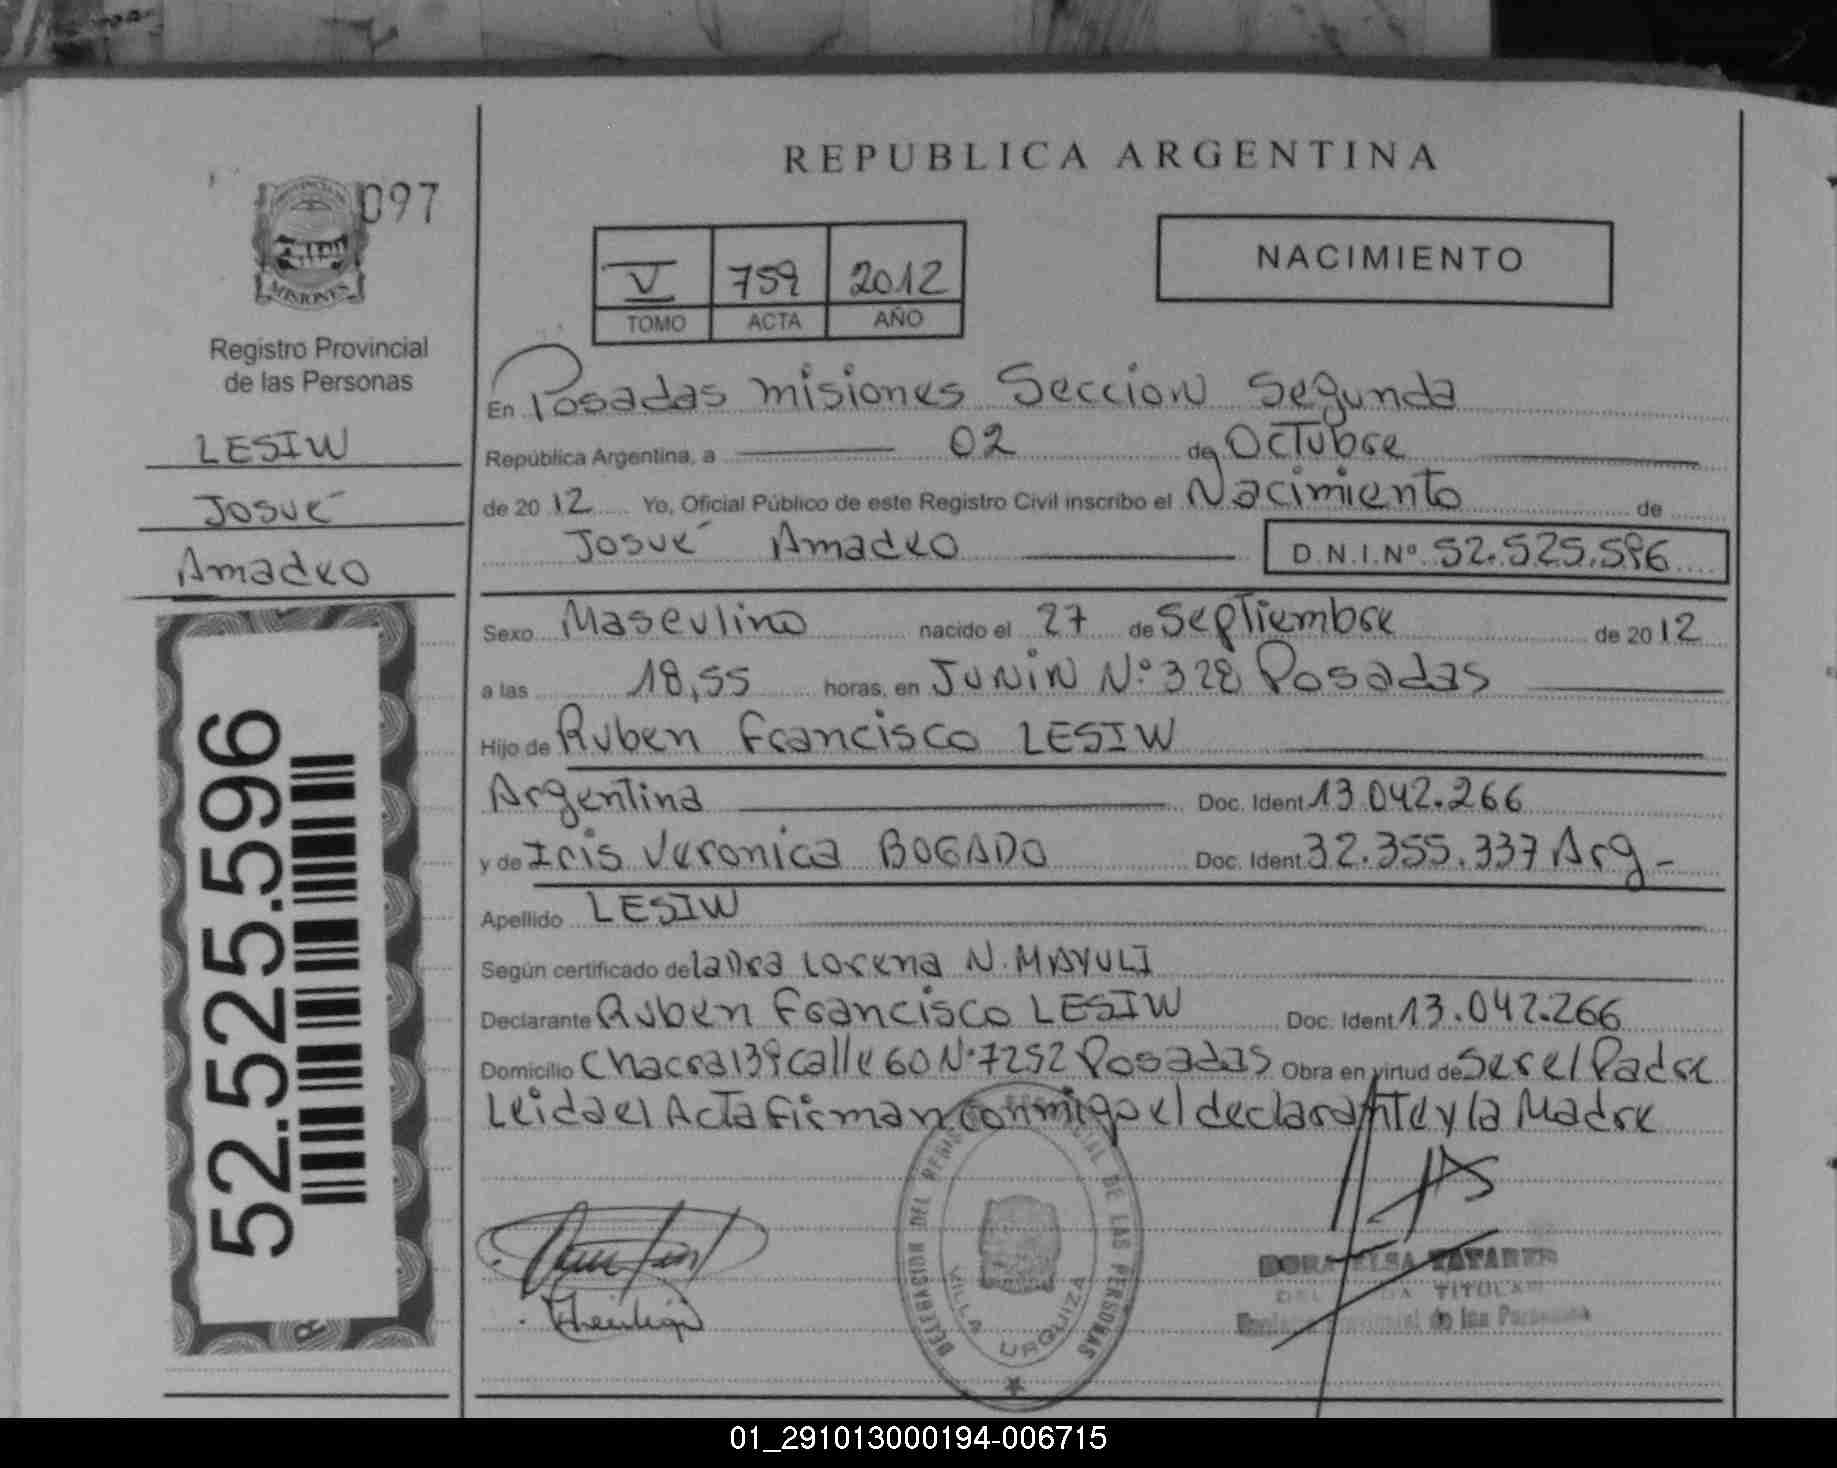 REPUBLICA ARGENTINA
097
MISIONES
Registro Provincial
de las Personas
LESIW
Josué
Amadeo
52.525.596
V 759 2012
TOMO ACTA AÑO
NACIMIENTO
En Posadas misiones Seccion Segunda
República Argentina, a 02 de Octubre
de 2012 Yo, Oficial Público de este Registro Civil inscribo el Nacimiento de
Josué Amadeo D.N.I.Nº 52.525.596
Sexo Masculino nacido el 27 de Septiembre de 2012
a las 18,55 horas, en JUNIN Nº 328 Posadas
Hijo de Ruben Francisco LESIW
Argentina Doc. Ident 13.042.266
y de Iris Veronica BOGADO Doc. Ident 32.355.337 Arg-
Apellido LESIW
Según certificado de laura Lorena N. MAYULI
Declarante Ruben Francisco LESIW Doc. Ident 13.042.266
Domicilio Chacra 139 calle 60 Nº 7252 Posadas Obra en virtud de Ser el Padre
Leida el Acta firman conmigo el declarante y la Madre
DELEGACION DEL REGISTRO PROVINCIAL DE LAS PERSONAS
VILLA URQUIZA
DORA ELSA
TITULAR
Provincial de las Personas
01_291013000194-006715